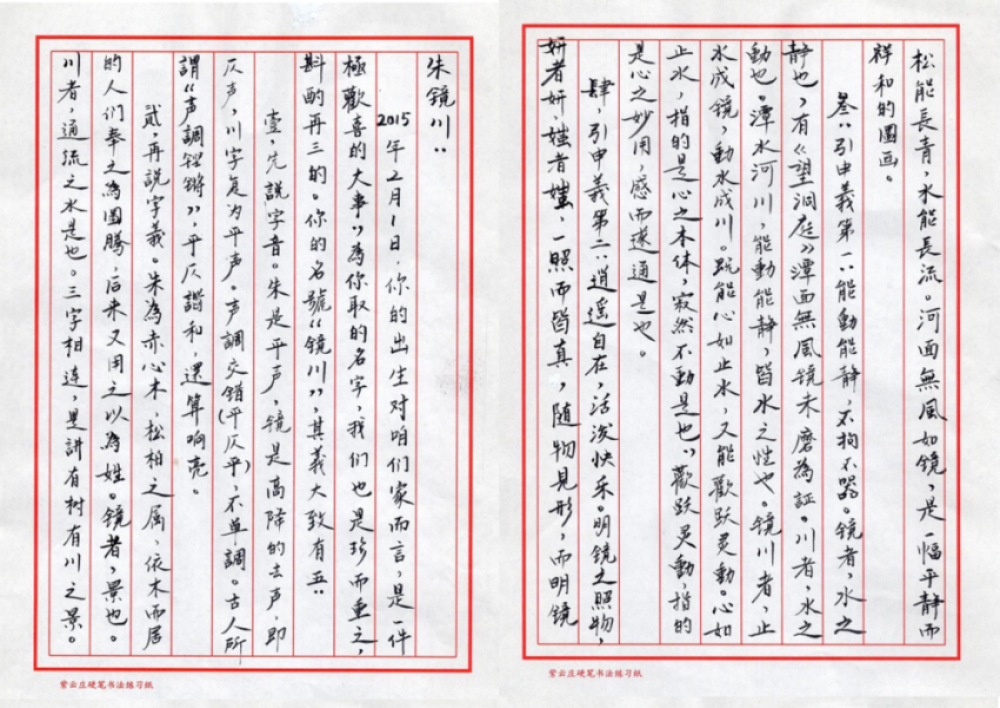 朱镜川：
2015年2月1日，你的出生对咱们家而言，是一件
極歡喜的大事，为你取的名字，我们也是珍而重之，
斟酌再三的。你的名號《镜川》，其義大致有五：
壹，先説字音。朱是平声，镜是高降的去声，即
仄声，川字复为平声。声調交错(平仄平)，不单調。古人所
謂《声調铿锵》，平仄諧和，還算响亮。
貳，再説字義。朱為赤心木，松柏之属，依木而居
的人们奉之為圖騰，后来又用之以為姓。镜者，景也。
川者，通流之水是也。三字相连，是讲有树有川之景。
紫云庄硬笔书法练习纸
松能長青，水能長流。河面無風如镜，是一幅平静而
祥和的圖画。
叁：引申義第一：能動能静，不拘不器。镜者，水之
静也，有《望洞庭》潭面無風镜未磨為証。川者，水之
動也。潭水河川，能動能静，皆水之性也。镜川者，止
水成镜，動水成川。既能心如止水，又能歡跃灵動。心如
止水，指的是心之本体，寂然不動是也，歡跃灵動，指的
是心之妙用，感而遂通是也。
肆，引申義第二：逍遥自在，活泼快乐。明镜之照物，
妍者妍，媸者媸，一照而皆真，随物見形，而明镜
紫云庄硬笔书法练习纸